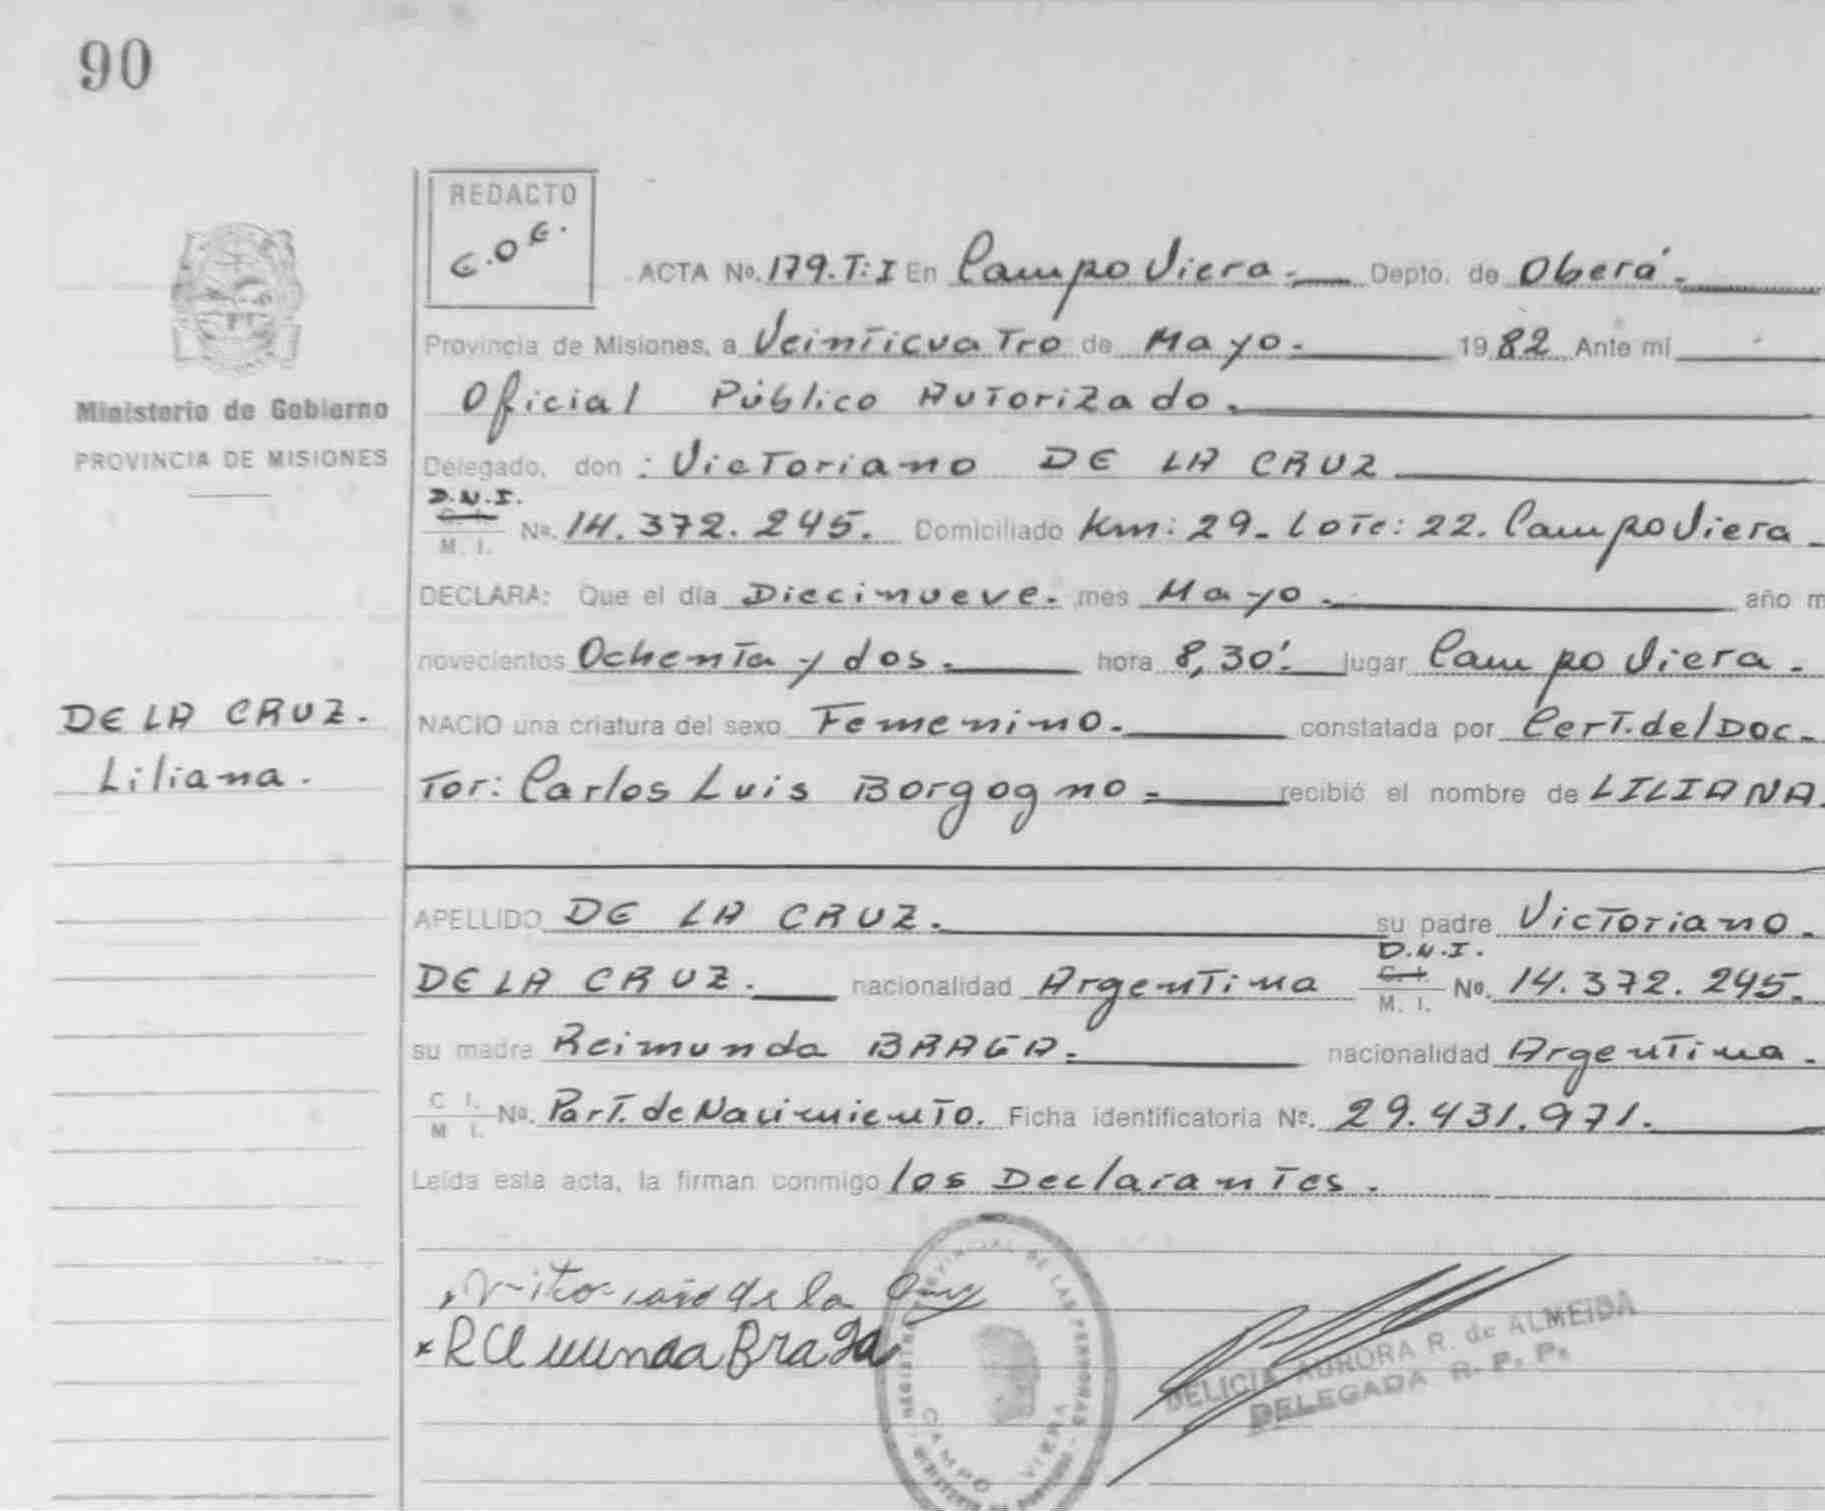 90
REDACTO
C.O.E.
ACTA No. 179.T:I En Campo Viera.- Depto. de Oberá.-
Provincia de Misiones, a Veinticuatro de Mayo.- 1982 Ante mí
Oficial Público Autorizado.
Ministerio de Gobierno
PROVINCIA DE MISIONES
Delegado, don : Victoriano DE LA CRUZ
D.N.I.
C. I.
M. I.
No. 14.372.245. Domiciliado Km: 29- Lote: 22. Campo Viera-
DECLARA: Que el día Diecinueve. mes Mayo.- año m
novecientos Ochenta y dos.- hora 8,30'.- lugar Campo Viera.-
DE LA CRUZ.
Liliana.
NACIO una criatura del sexo Femenino.- constatada por Cert. del Doc-
tor: Carlos Luis Borgogno.- recibió el nombre de LILIANA.
APELLIDO DE LA CRUZ.- su padre Victoriano.
DE LA CRUZ.- nacionalidad Argentina D.N.I. C. I. M. I. No. 14.372.245.
su madre Reimunda BRAGA.- nacionalidad Argentina.
C I. M I. No. Part. de Nacimiento. Ficha identificatoria No. 29.431.971.
Leída esta acta, la firman conmigo los Declarantes.
de la Cruz
Braga
DE LAS PERSONAS
CAMPO VIERA
DELICIA AURORA R. de ALMEIDA
DELEGADA R. P. P.